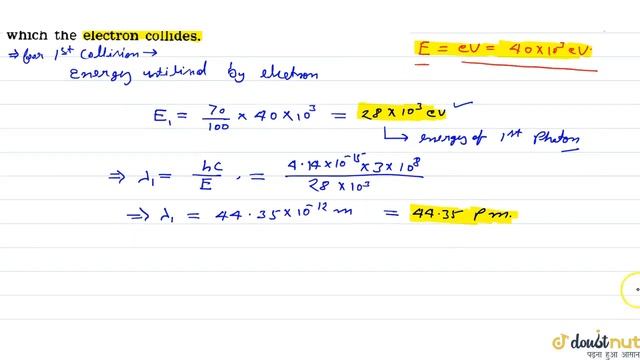 which the electron collides.
E = eV = 40×10³ eV.
⇒ for 1st Collision →
Energy utilind by electron
E₁ = 70/100 × 40×10³ = 28×10³ eV
↳ energy of 1st Photon
⇒ λ₁ = hc/E = 4.14×10⁻¹⁵×3×10⁸/28×10³
⇒ λ₁ = 44.35×10⁻¹² m = 44.35 Pm.
doubtnut
पढ़ना हुआ आसान